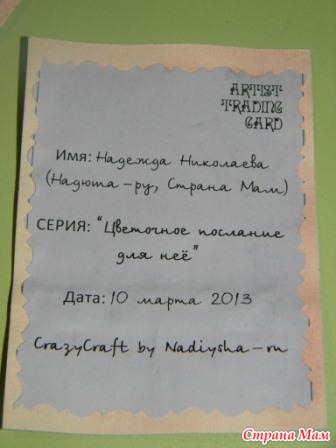 ARTIST
TRADING
CARD
Имя: Надежда Николаева
(Надюта-ру, Страна Мам)
СЕРИЯ: "Цветочное послание
для неё"
Дата: 10 марта 2013
CrazyCraft by Nadiysha-ru
Страна Мам